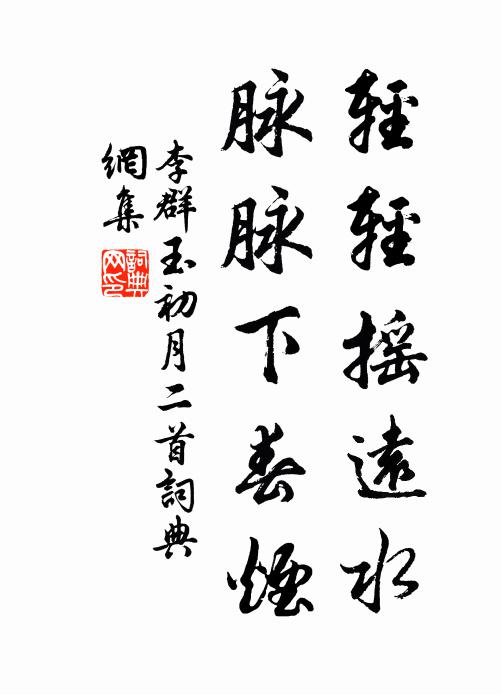 輕輕搖遠水
脉脉下春煙
李群玉初月二首詞典
網集
詞典
网印